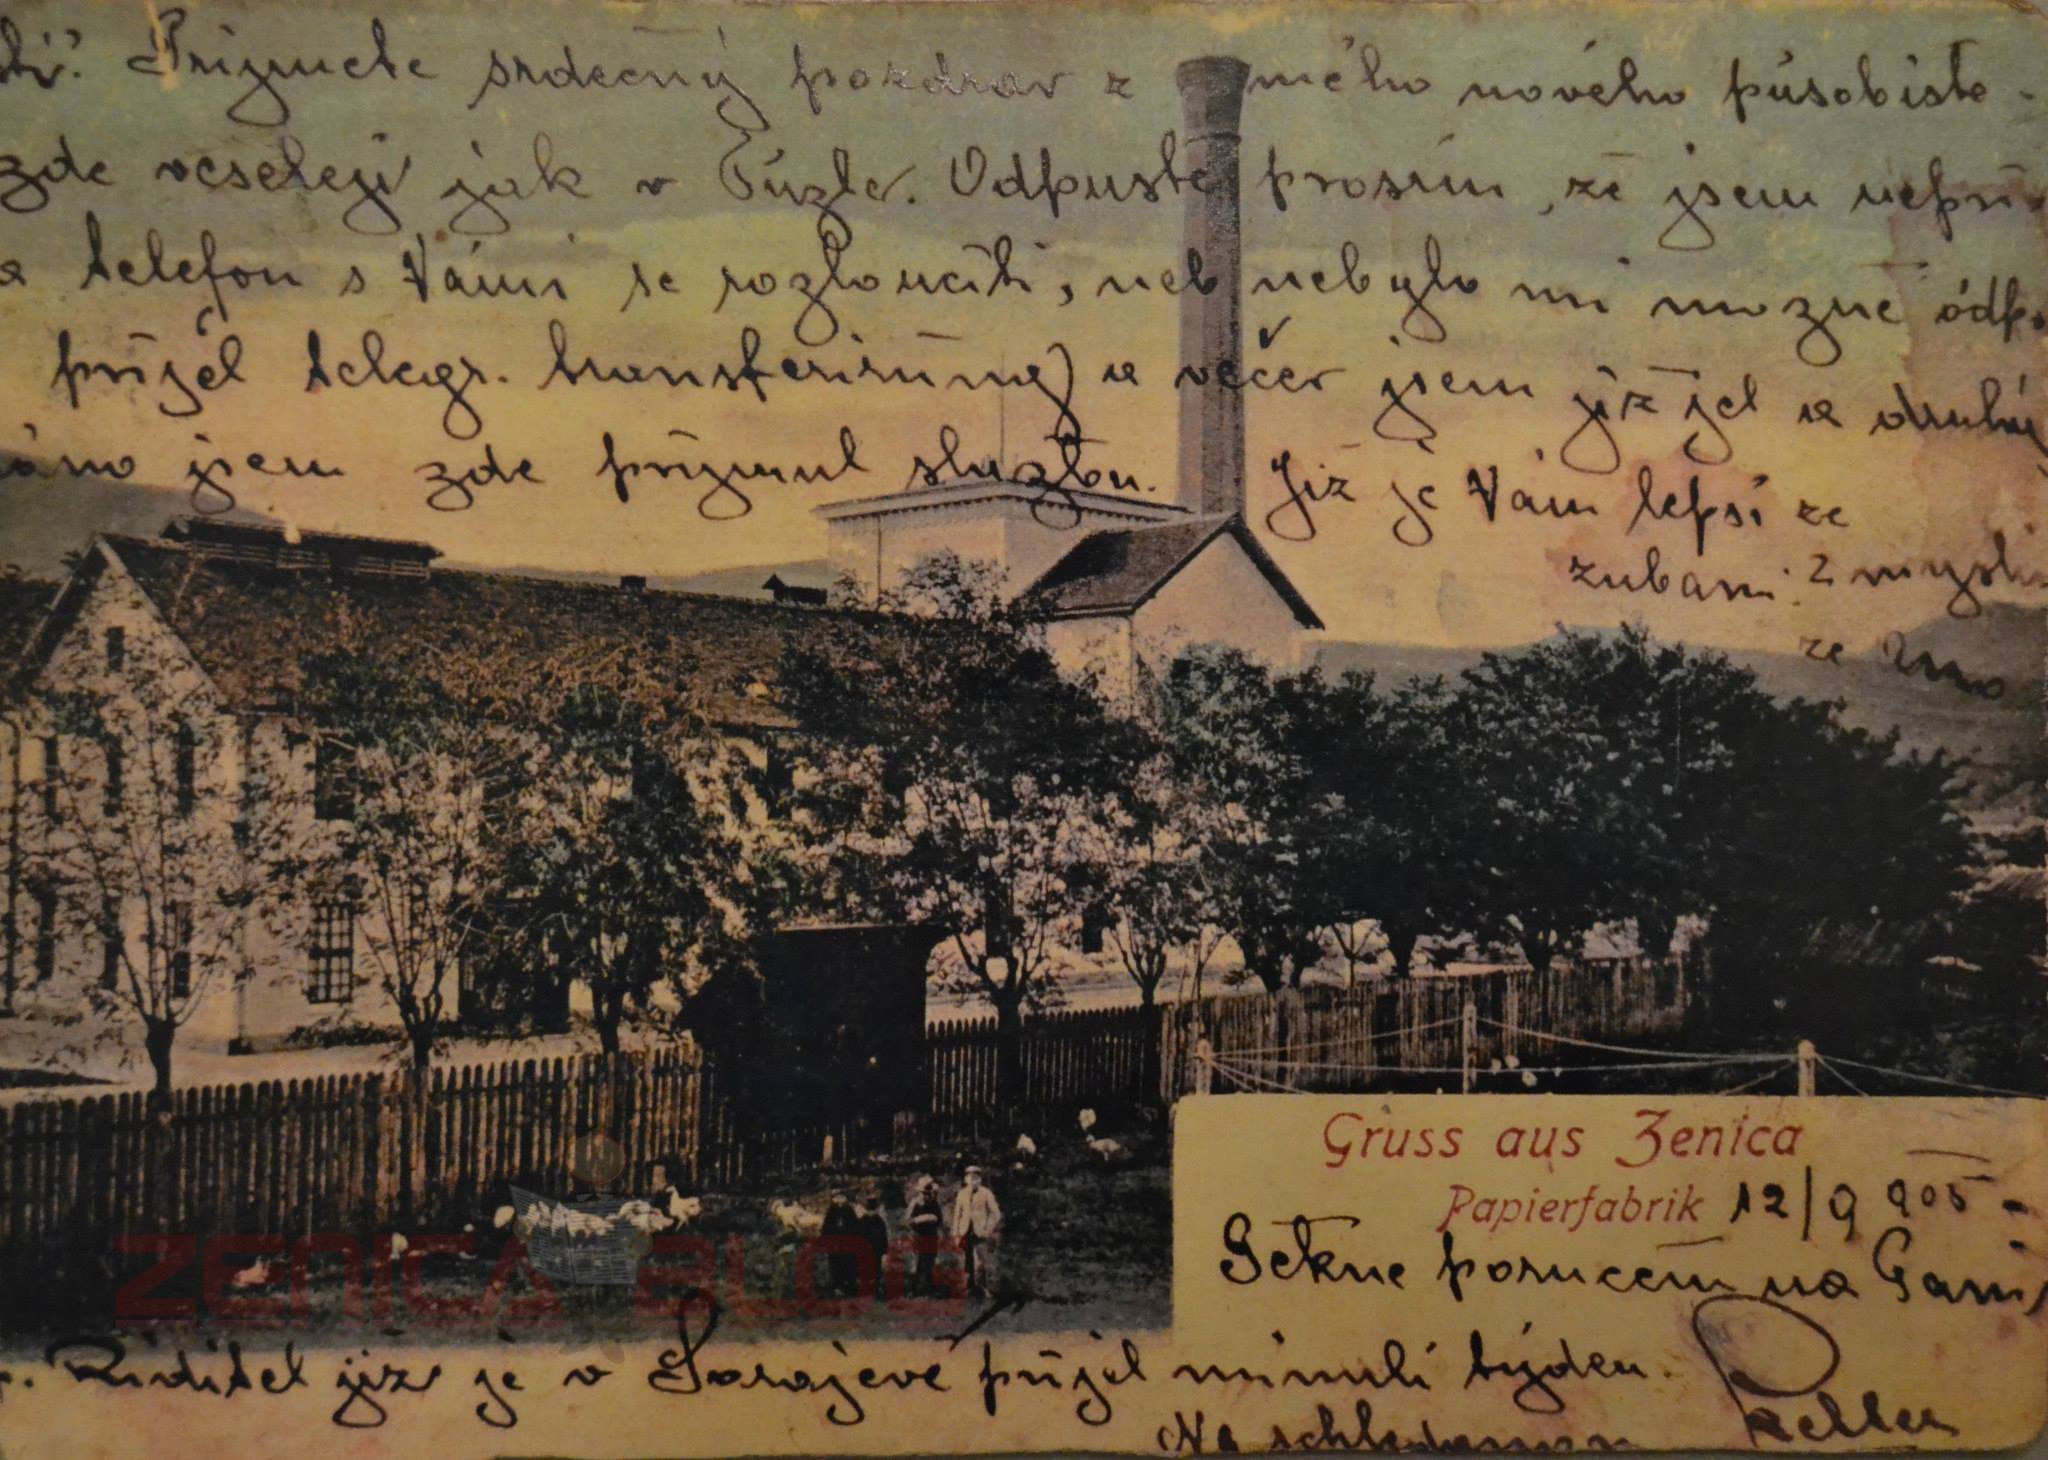 Prijmete srdečny pozdrav z mého nového působiště -
zde veseleji jak v Tuzle. Odpustě prosím, že jsem nepři-
a telefon s Vámi se rozloučiti, neb nebylo mi možné odp.
přijel telegr. transferirung) a večer jsem již jel a druhý
ráno jsem zde přijmul službu. Již je Vám lepší ze
zubami? Zmysli
ze
Gruss aus Zenica
Papierfabrik 12/9 905 -
Pěkné poručení na Paní
Ředitel již je v Sarajevě přijel minulí týden.
Na schledanou
ZENICA BLOG